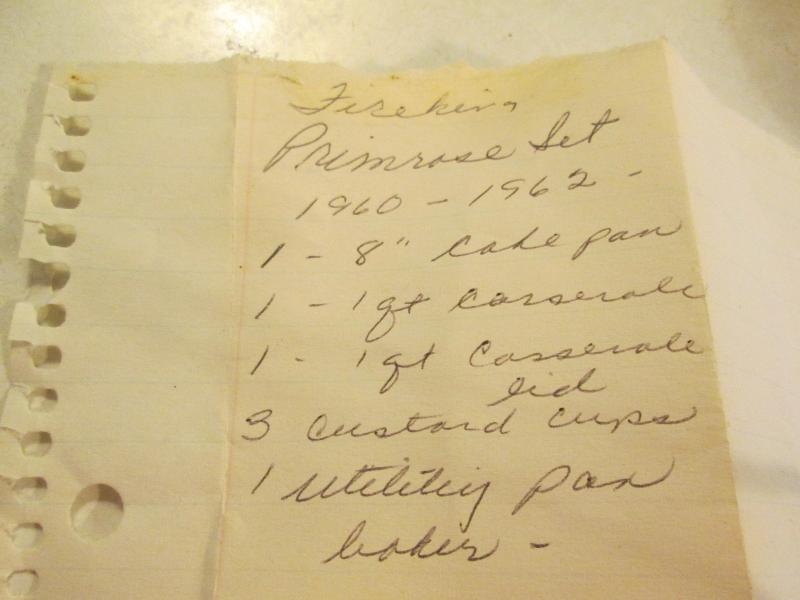 Fireking
Primrose Set
1960 - 1962 -
1 - 8" cake pan
1 - 1qt casserole
1 - 1qt Casserole
lid
3 custard cups
1 utility pan
baker -